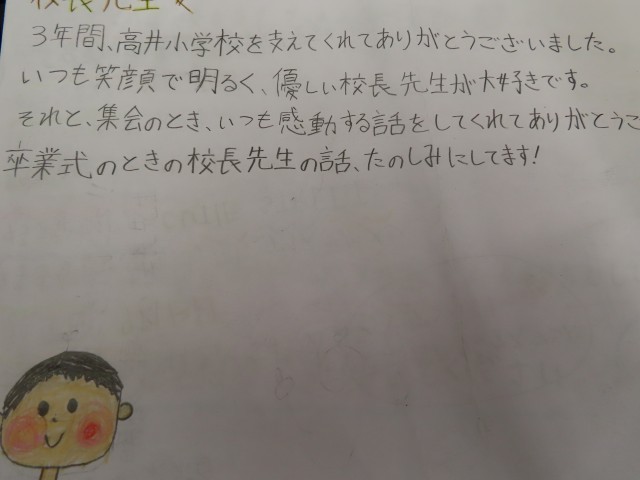 校長先生へ
3年間、高井小学校を支えてくれてありがとうございました。
いつも笑顔で明るく、優しい校長先生が大好きです。
それと、集会のとき、いつも感動する話をしてくれてありがとうご
卒業式のときの校長先生の話、たのしみにしてます!